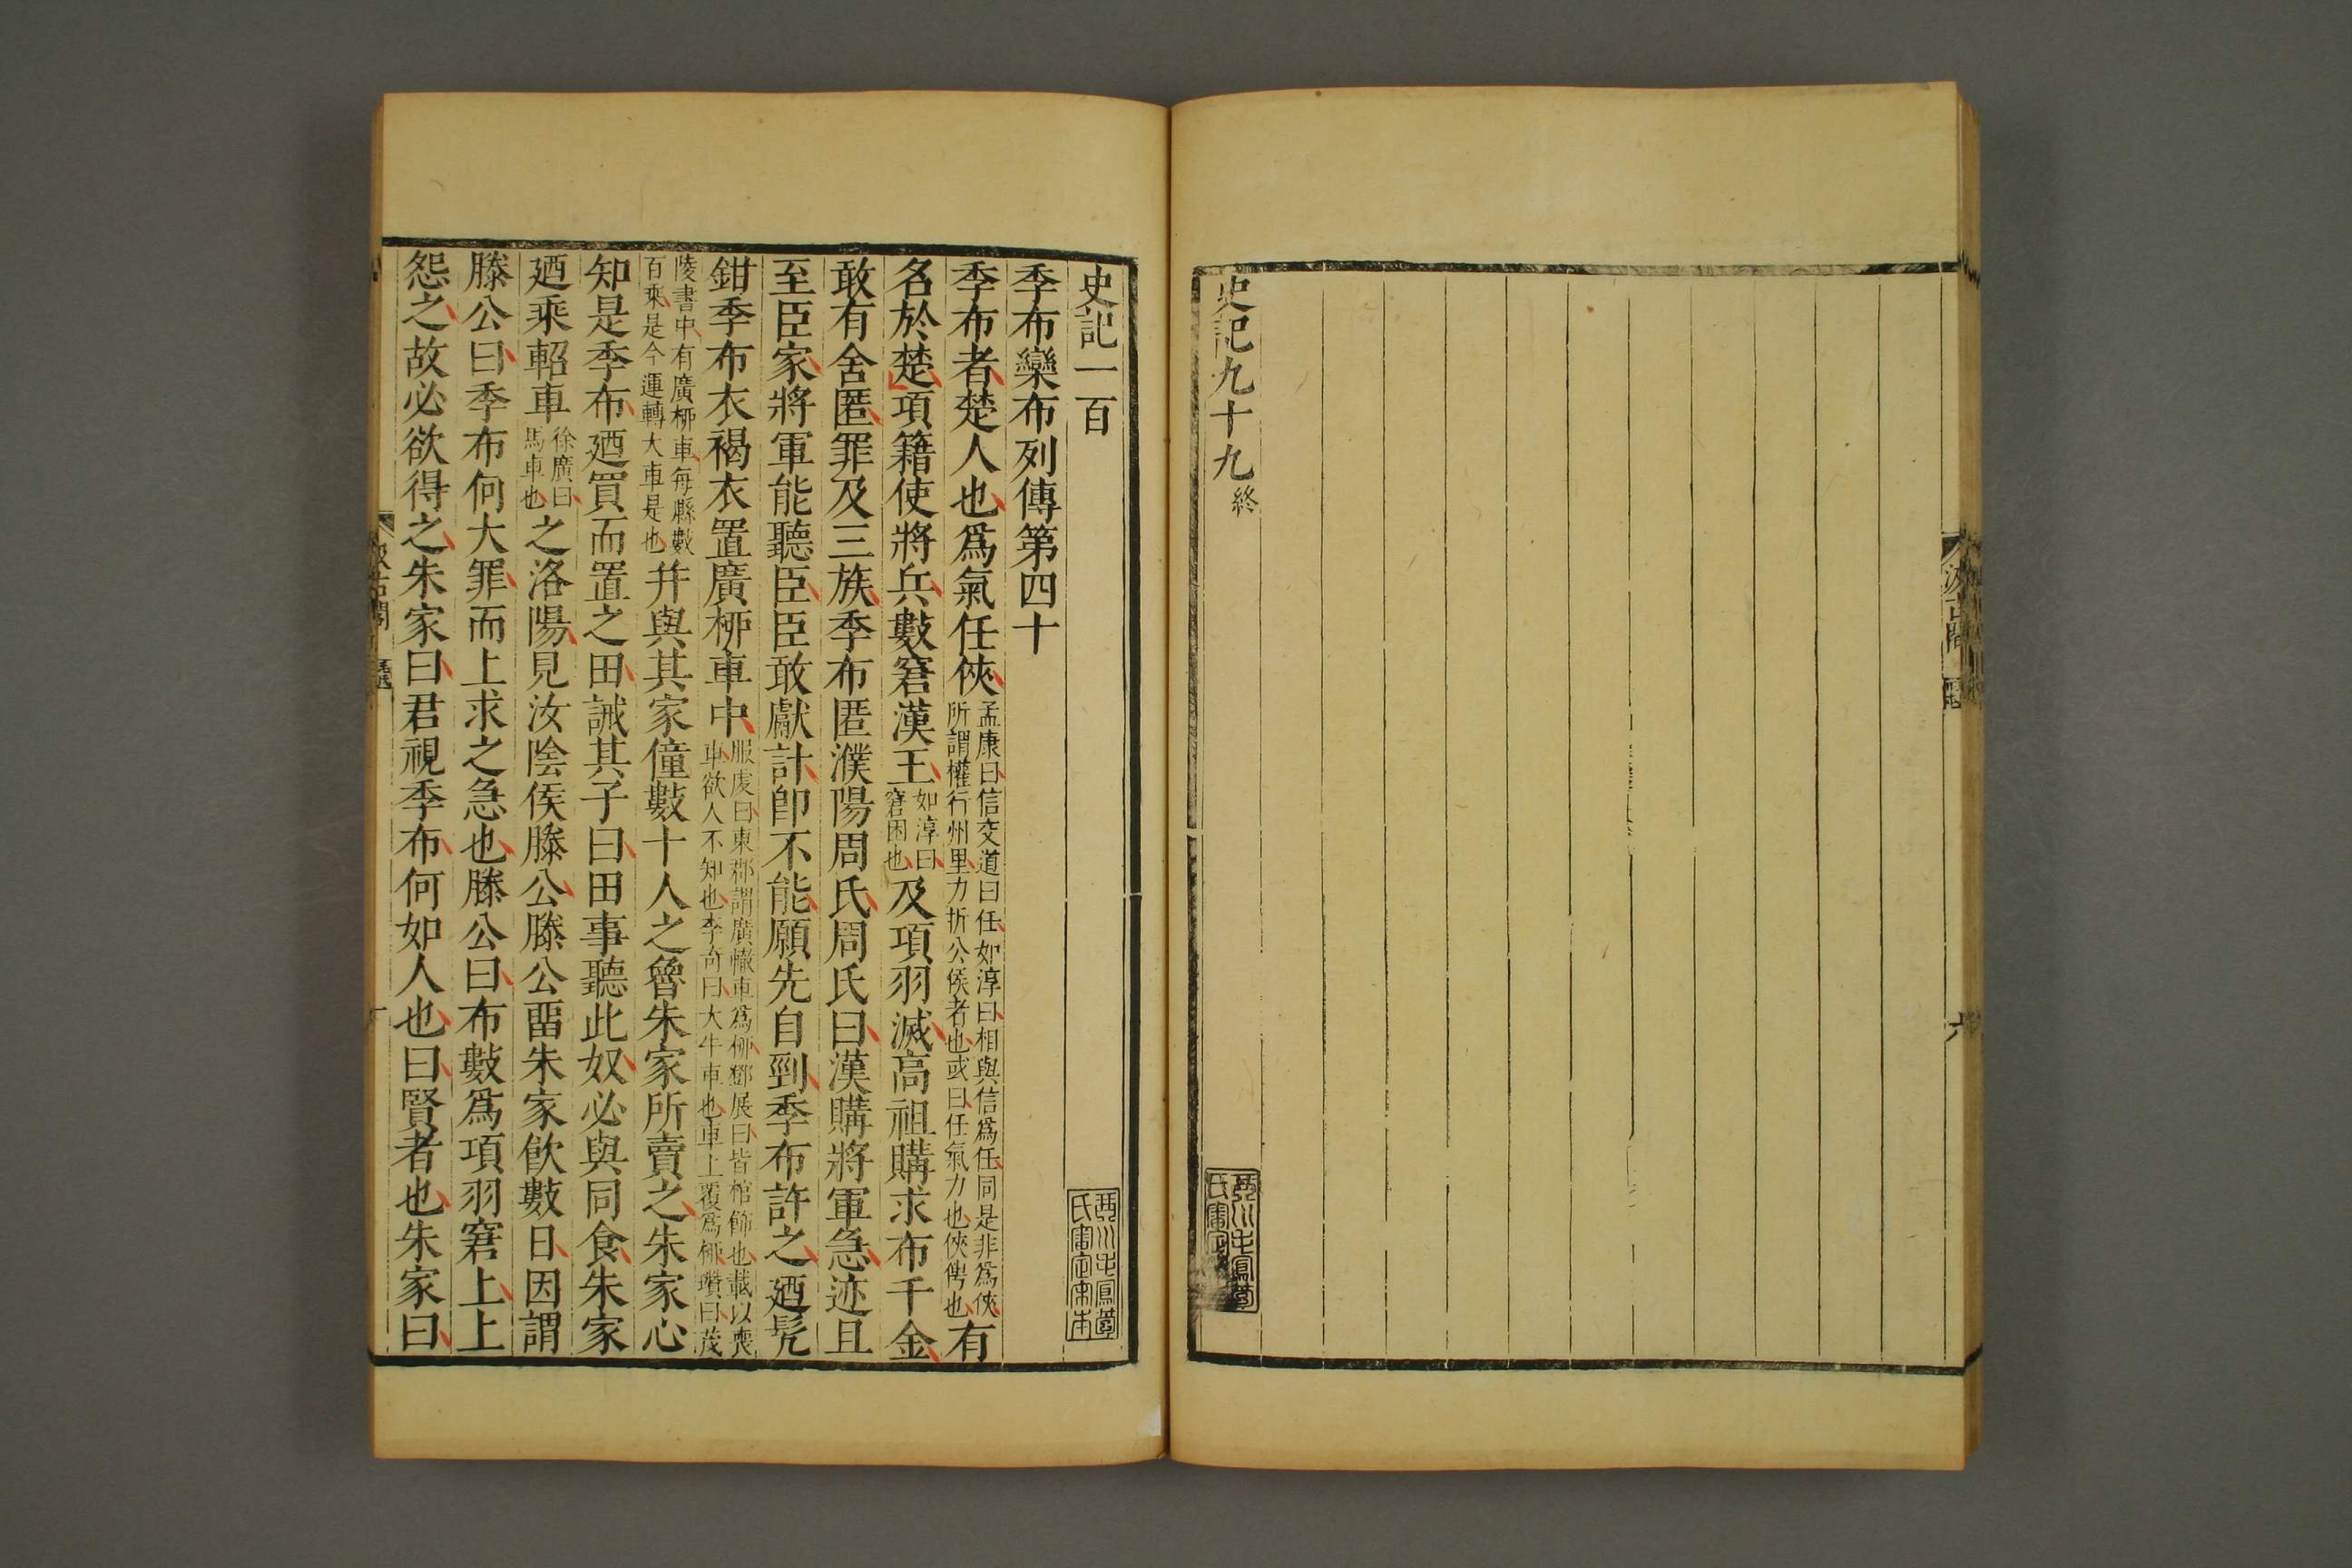 汲古閣
六
史記九十九 終
史記一百
季布欒布列傳第四十
季布者楚人也爲氣任俠 孟康曰信交道曰任如淳曰相與信爲任同是非爲俠所謂權行州里力折公侯者也或曰任氣力也俠俜也 有
名於楚項籍使將兵數窘漢王 如淳曰窘困也 及項羽滅高祖購求布千金
敢有舍匿罪及三族季布匿濮陽周氏周氏曰漢購將軍急迹且
至臣家將軍能聽臣臣敢獻計卽不能願先自剄季布許之廼髠
鉗季布衣褐衣置廣柳車中 服虔曰東郡謂廣轍車爲柳鄧展曰皆棺飾也載以喪車欲人不知也李奇曰大牛車也車上覆爲柳瓚曰茂
陵書中有廣柳車每縣數百乘是今運轉大車是也 幷與其家僮數十人之魯朱家所賣之朱家心
知是季布廼買而置之田誡其子曰田事聽此奴必與同食朱家
廼乘軺車 徐廣曰馬車也 之洛陽見汝陰侯滕公滕公畱朱家飮數日因謂
滕公曰季布何大罪而上求之急也滕公曰布數爲項羽窘上上
怨之故必欲得之朱家曰君視季布何如人也曰賢者也朱家曰
汲古閣